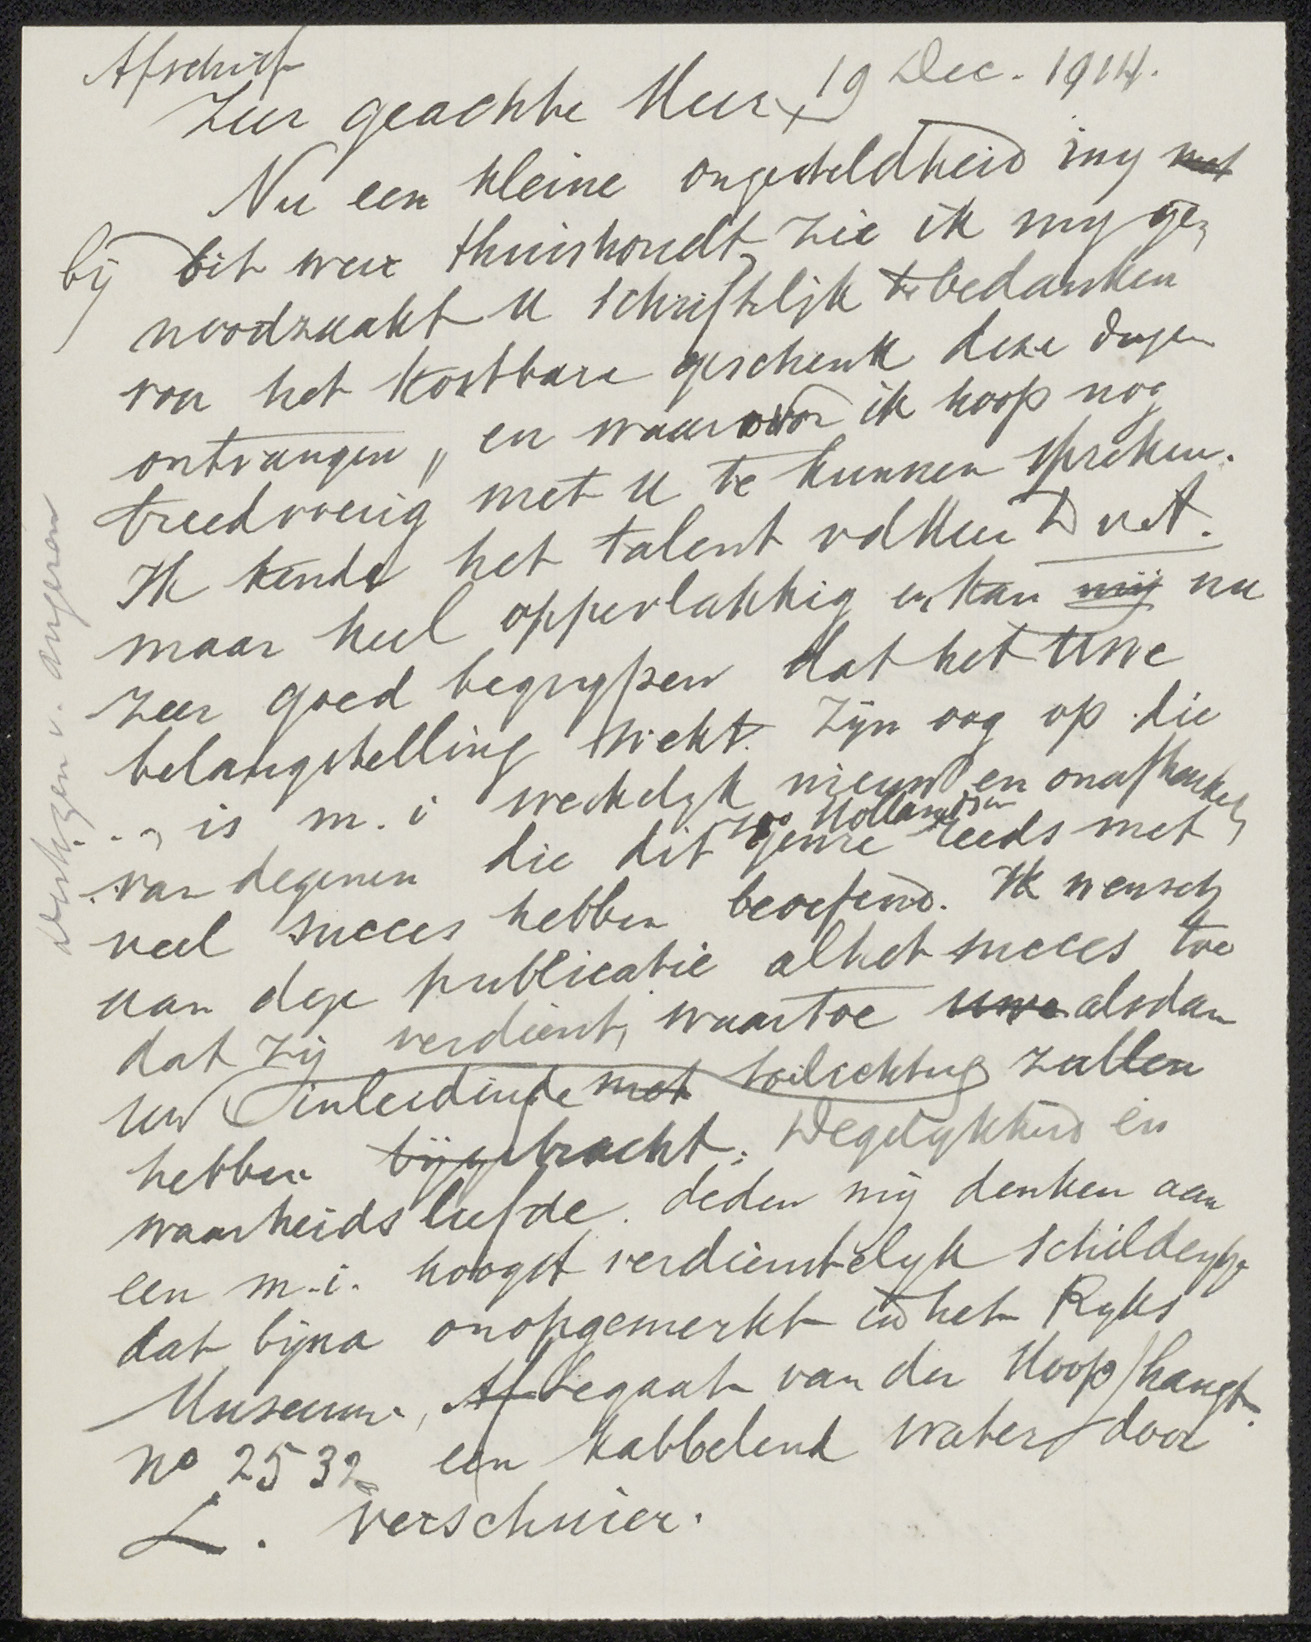 Afschrift
Zeer geachte Heer, 19 Dec. 1914.
Nu een kleine ongesteldheid my met
bij dit weer thuishoudt, zie ik my ge-
noodzaakt U schriftelijk te bedanken
voor het kostbare geschenk deze dagen
ontvangen, en waarvoor ik hoop nog
breedvoerig met U te kunnen spreken.
Ik kende het talent v d Heer D v. A.
maar heel oppervlakkig en kan mij nu
zeer goed begrypen dat het Uwe
belangstelling wekt. Zijn oog op die
is m. i werkelyk nieuw en onafhankel,
zoo Hollandsch
van degenen die dit genre reeds met
veel succes hebben beoefend. Ik wensch
aan deze publicatie al het succes toe
dat zij verdient, waartoe uwe alsdan
uw inleidinde met toelichting zullen
hebben bijgebracht. Degelykheid en
waarheidsliefde deden mij denken aan
een m.i. hoogst verdienstelyk schildery,
dat bijna onopgemerkt in het Ryks
Museum, Af legaat van der Hoop/hangt.
No 2532 een kabbelend water, door
L. Verschuier.
derkzen v. angeren